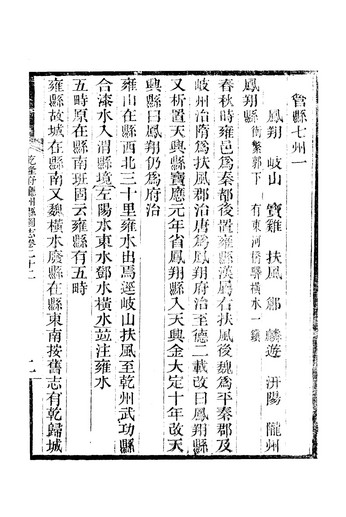 管縣七州一
鳳翔 岐山 寶雞 扶風 郿 麟遊 汧陽 隴州
鳳翔縣 衝繁郭下 有東河橋驛橫水一鎮
春秋時雍邑為秦都後置雍縣漢屬右扶風後魏為平秦郡及
岐州治隋為扶風郡治唐為鳳翔府治至德二載改曰鳳翔縣
又析置天興縣寶應元年省鳳翔縣入天興金大定十年改天
興縣曰鳳翔仍為府治
雍山在縣西北三十里雍水出焉逕岐山扶風至乾州武功縣
合漆水入渭縣境左陽水東水鄧水橫水並注雍水
五畤原在縣南班固云雍縣有五畤
雍縣故城在縣南又魏橫水廢縣在縣東南按舊志有乾歸城
乾隆府廳州縣圖志卷二十二